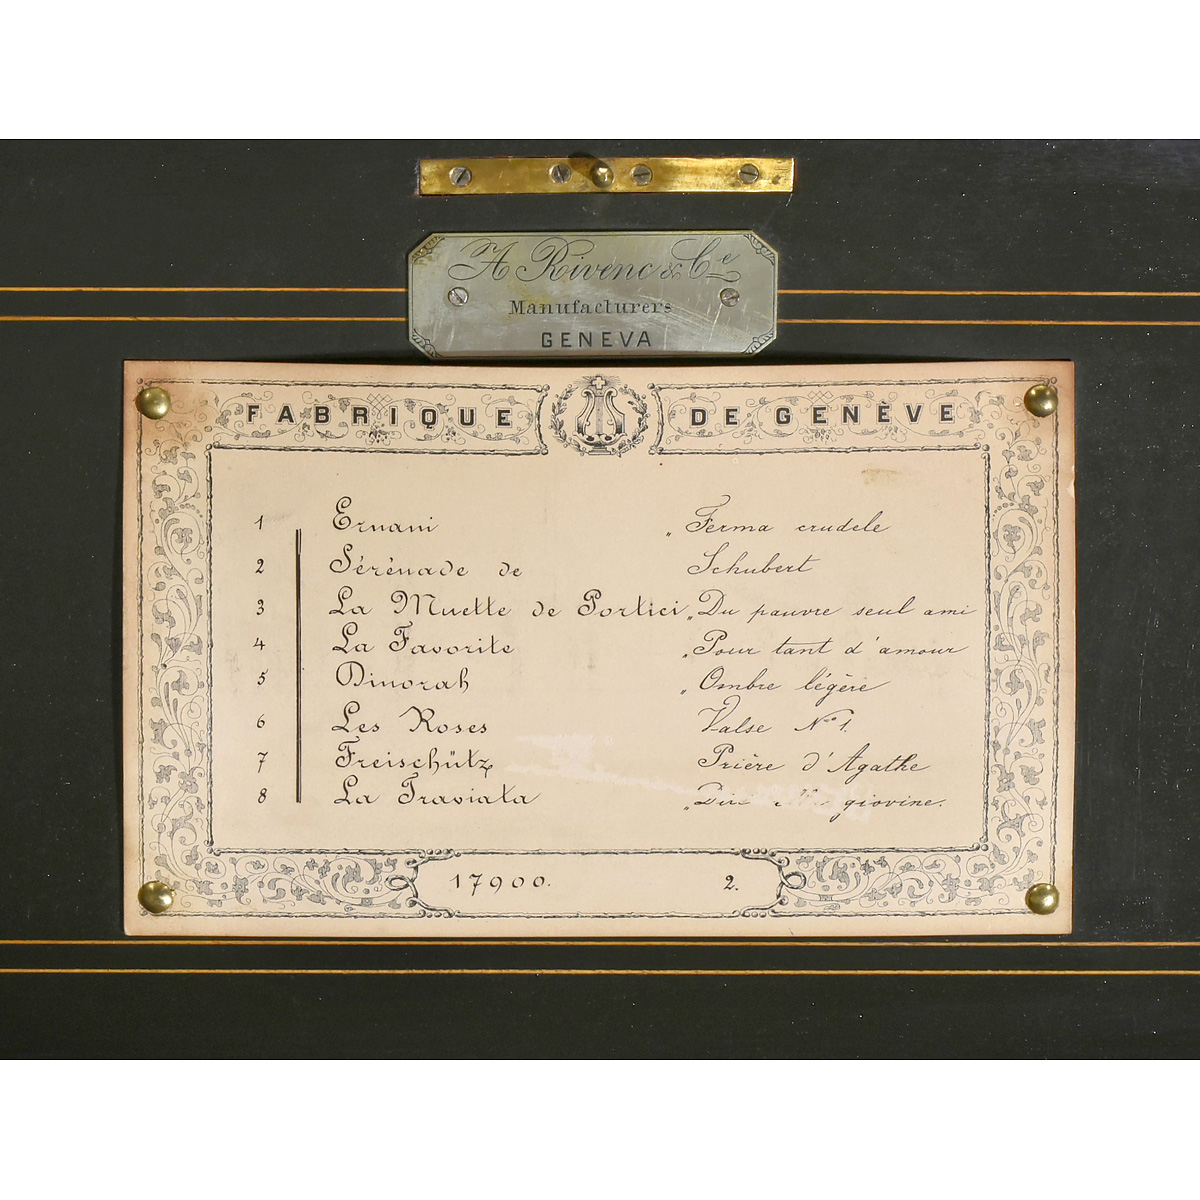 A Rivenc & Cie
Manufacturers
GENEVA
FABRIQUE DE GENÈVE
1 Ernani „ Ferma crudele
2 Sérénade de Schubert
3 La Muette de Portici „ Du pauvre seul ami
4 La Favorite „ Pour tant d'amour
5 Dinorah „ Ombre légère
6 Les Roses Valse No 1.
7 Freischütz Prière d'Agathe
8 La Traviata „ giovine.
17900. 2.